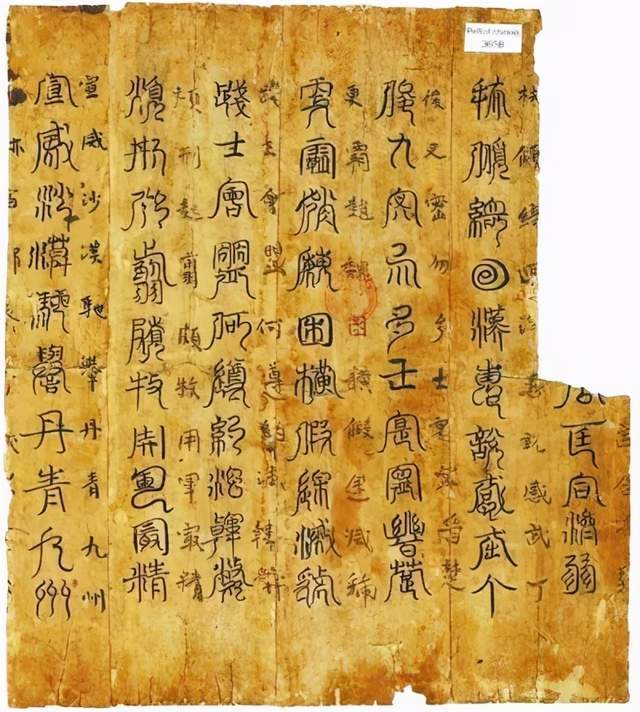 Pelliot chinois
3658
公匡合濟弱
扶傾綺迴漢惠說感武丁
扶傾綺回漢惠說感武丁
俊乂密勿多士寔寧晉楚
俊乂密勿多士寔寧晉楚
更霸趙魏困橫假途滅虢
更霸趙魏困橫假途滅虢
踐土會盟何遵約法韓弊
踐土會盟何遵約法韓弊
煩刑起翦頗牧用軍最精
煩刑起翦頗牧用軍最精
宣威沙漠馳譽丹青九州
宣威沙漠馳譽丹青九州